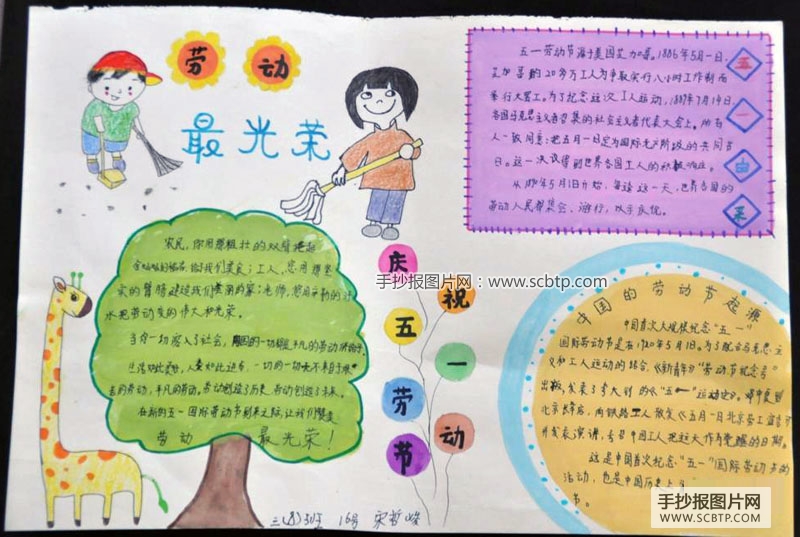 劳动
最光荣
五一由来
五一劳动节源于美国芝加哥。1886年5月1日,
芝加哥的20多万工人为争取实行八小时工作制而
举行大罢工。为了纪念这次工人运动,1889年7月14日,
各国马克思主义者召集的社会主义者代表大会上。所有
人一致同意:把五月一日定为国际无产阶级的共同节
日。这一决议得到世界各国工人的积极响应。
从1890年5月1日开始,每逢这一天,世界各国的
劳动人民都集会、游行,以示庆祝。
农民,你用那粗壮的双臂
给我们美食;工人,您用
实的臂膀建造我们的家;老师,您用辛勤的汗
水把劳动变的伟大和光荣。
当你一切深入了社会,一切都是平凡的劳动
去的劳动,平凡的劳动。劳动创造了历史,劳动创造了未来。
在新的五一国际劳动节到来之际,让我们
劳动 最光荣!
庆祝五一劳动节
手抄报图片网:www.scbtp.com
中国的劳动节起源
中国首次大规模纪念“五一”
国际劳动节是在1920年5月1日。为了配合马克思主
义和工人运动的结合,《新青年》“劳动节纪念号”
出版,发表了李大钊的《“五一”运动史》。邓中夏到
北京长辛店,向铁路工人散发《五月一日北京劳工宣言》
并发表演讲,号召中国工人把这天作为觉醒的日期。
这是中国首次纪念“五一”国际劳动节的
活动,也是中国历史上
节。
三(8)班 16号 宋哲峰
手抄报图片网
WWW.SCBTP.COM